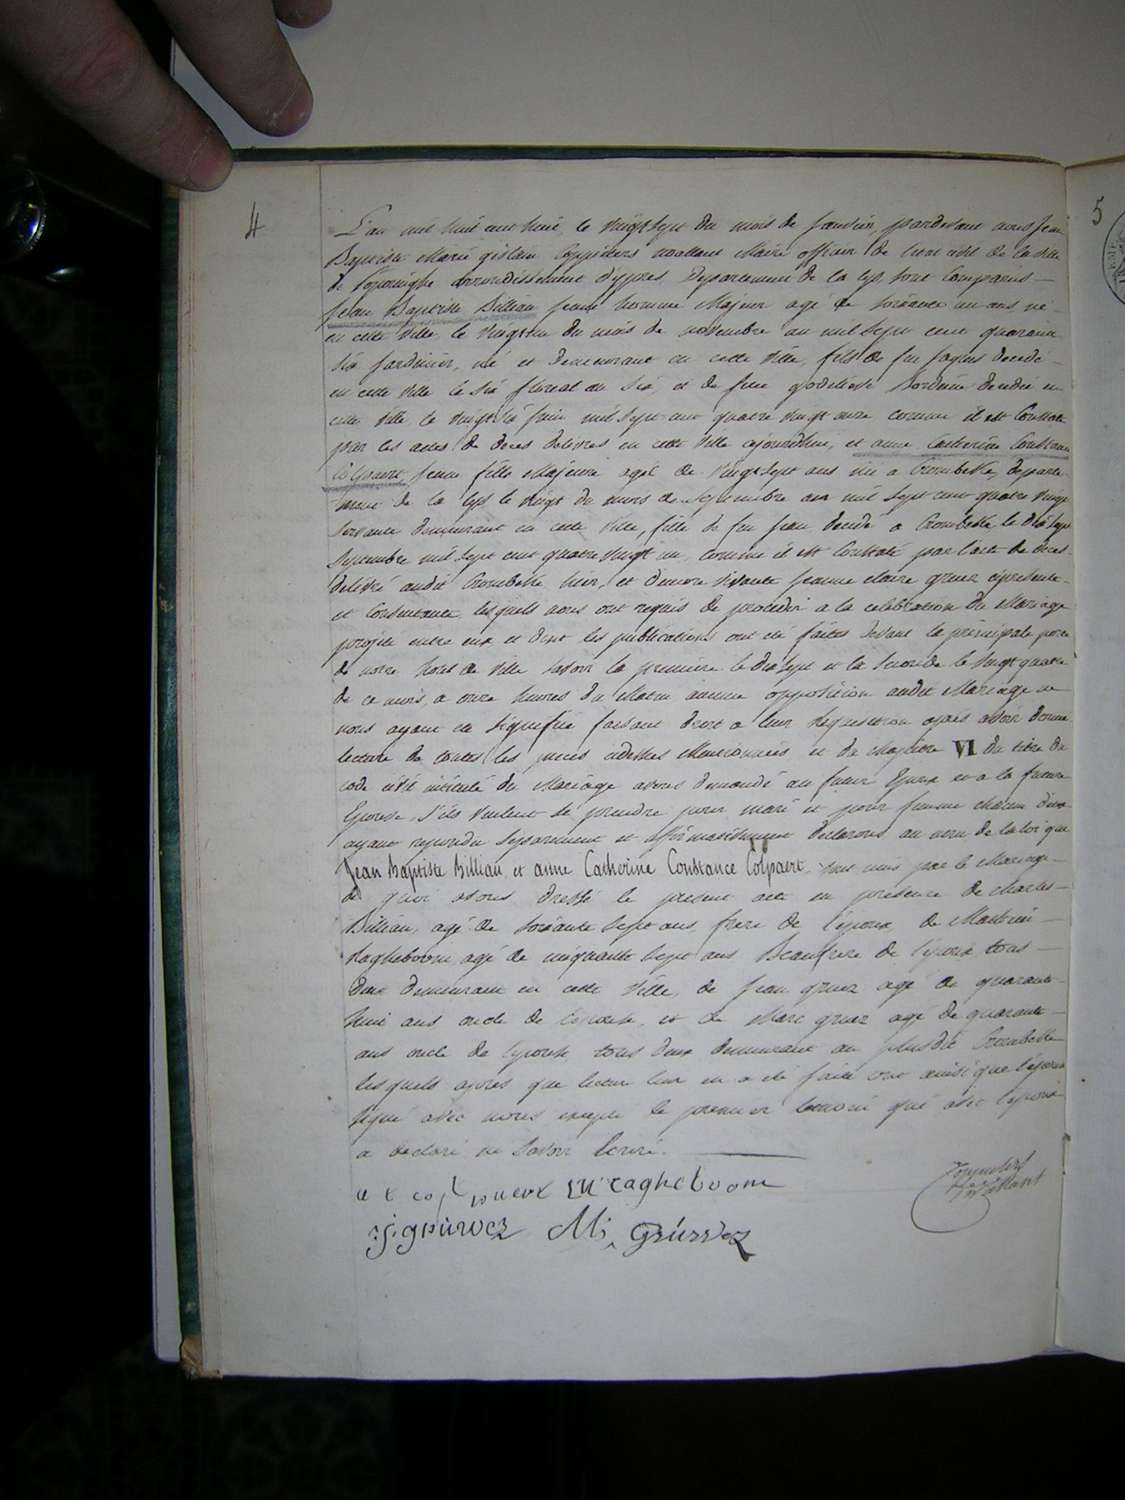 4
L'an mil huit cent huit, le vingt sept du mois de Janvier, pardevant nous Jean
Baptiste Marie gislain Coppitters wallant Maire officier de l'etat civil de la ville
de Poperinghe arrondissement d'ypres, Departement de la Lys, sont Comparus
Jean Baptiste Billiau jeune homme Majeur agé de soixante un ans né
en cette ville, le vingt un du mois de novembre an mil sept cent quarante
six jardinier, né et demeurant en cette ville, fils de feu jaques decedé
en cette ville le six floreal an six, et de feue godeliéve decedée en
cette ville, le vingt six juin mil sept cent quatre vingt onze comme il est Constaté
par les actes de deces delivrés en cette ville ajourdhui, et anne Catherine Constance
Colpaert, jeune fille Majeure agée de vingt sept ans née a Crombeke, departe-
ment de la Lys le vingt du mois de septembre an mil sept cent quatre vingt
servante demeurant en cette ville, fille de feu jean decedé a Crombeke le dix sept
Septembre mil sept cent quatre vingt un, comme il est Constaté par l'acte de deces
delivré audit Crombeke hier, et d'encore vivante jeanne claire gruez cipresente
et Consentante lesquels nous ont requis de proceder a la celebration du Mariage
projeté entre eux et dont les publications ont été faites devant la principale porte
de notre hotel de ville savoir la premiere le dix sept et la seconde le vingt quatre
de ce mois, a onze heures du Matin aucune opposition audit Mariage ne
nous ayant été signifiée faisant droit a leur requisition après avoir donné
lecture de toutes les pieces cidessus Mentionnées et du chapitre VI du titre du
code civil intitulé du Mariage avons demandé au futur Epoux et a la future
Epouse s'ils veulent se prendre pour mari et pour femme chacun d'eux
ayant repondu separement et affirmativement declarons au nom de la loi que
Jean Baptiste Billiau, et anne Catherine Constance Colpaert, sont unis par le Mariage
de quoi avons dressé le present acte en presence de charles
Billiau, agé de soixante sept ans, frere de l'époux, de
Ragheboom agé de cinquante sept ans Beaufrere de l'époux, tous
deux demeurant en cette ville, de jean gruez agé de quarante
huit ans oncle de l'épouse, et de Marc gruez agé de quarante
ans oncle de l'épouse, tous deux demeurant au plusdit Crombeke
lesquels apres que lecture leur en a été faite ont ainsi que l'épouse
signé avec nous excepté le premier temoin qui avec l'époux
a declaré ne savoir Ecrire.
ragheboom
j: grúwez M: Grúwez
5